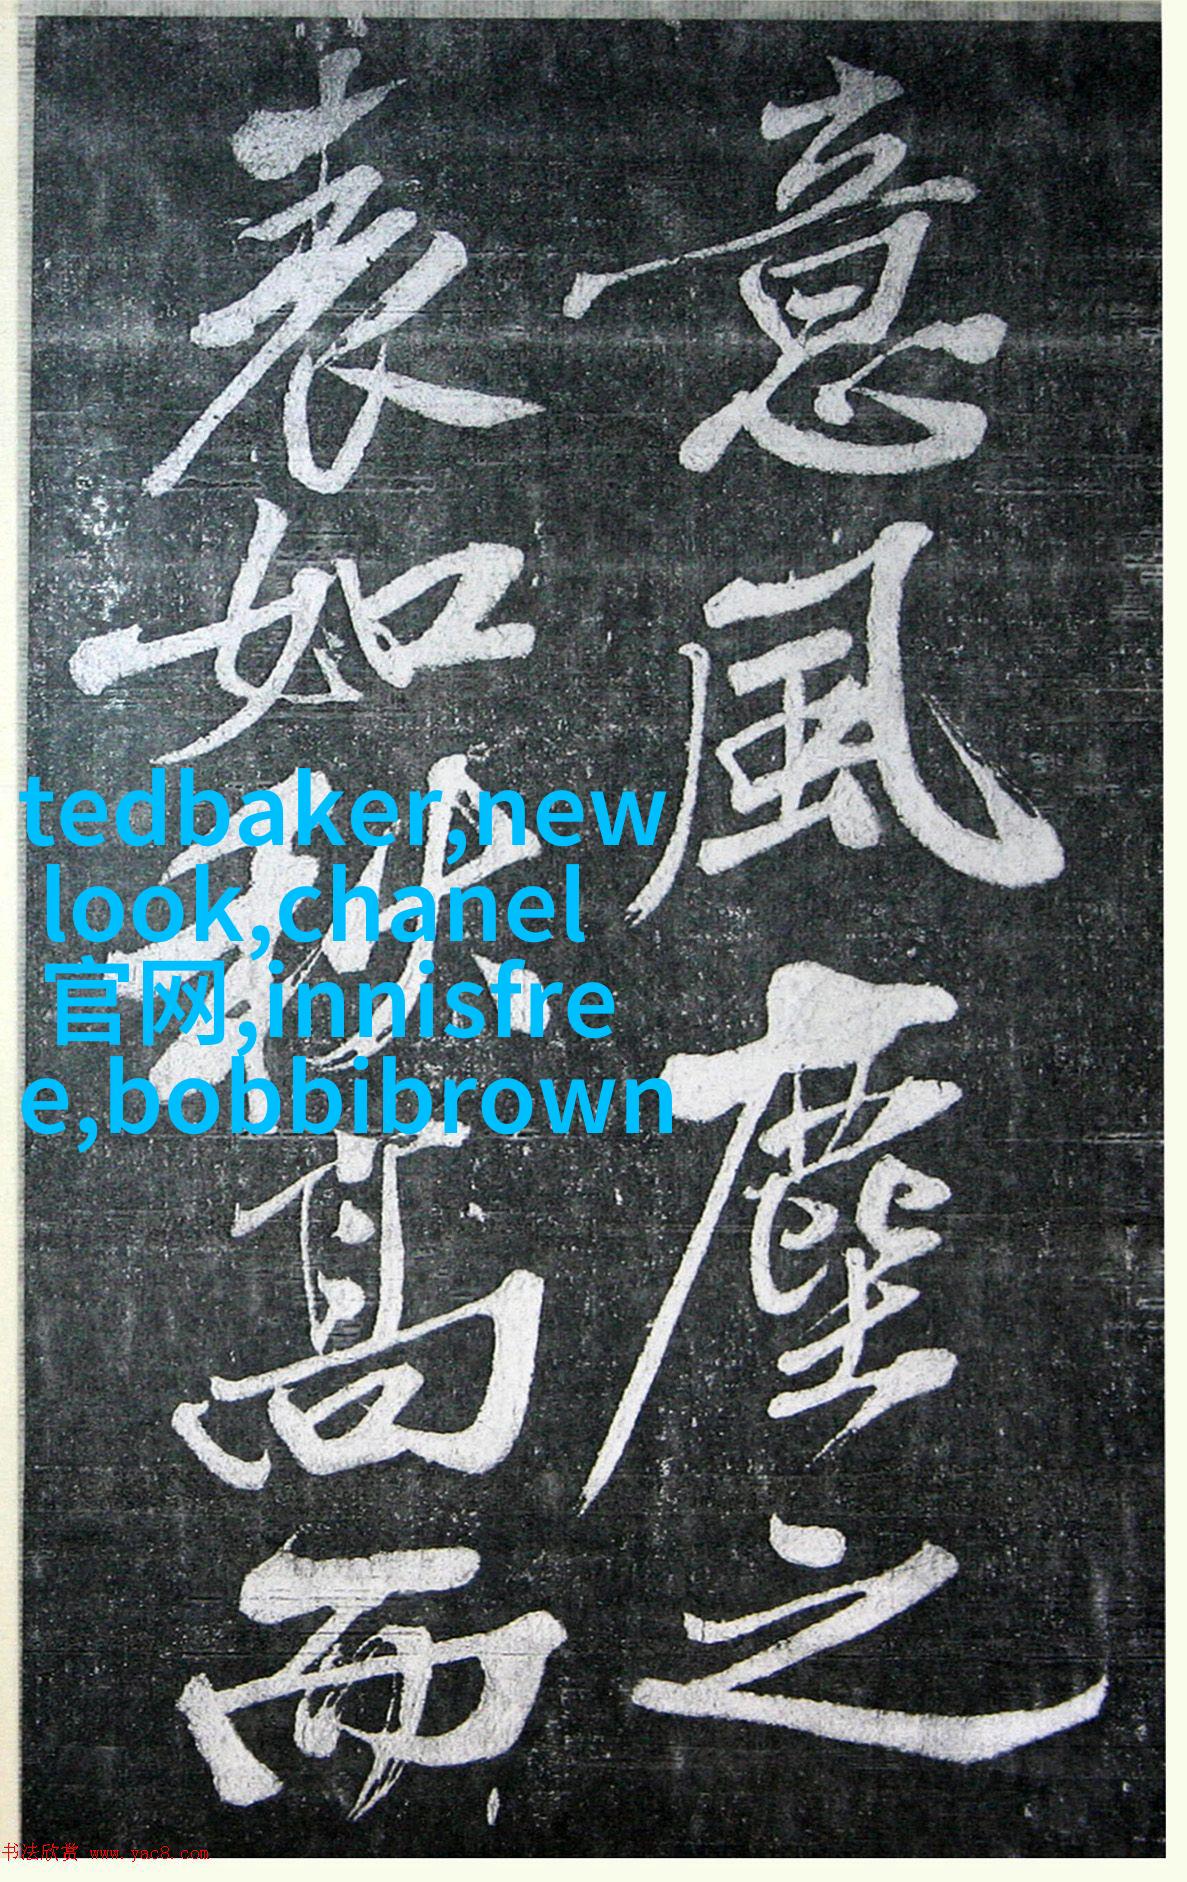 意風塵之
表如秋高而
tedbaker,new
look,chanel
官网,innisfre
e,bobbibrown
书法欣赏 www.yac8.com